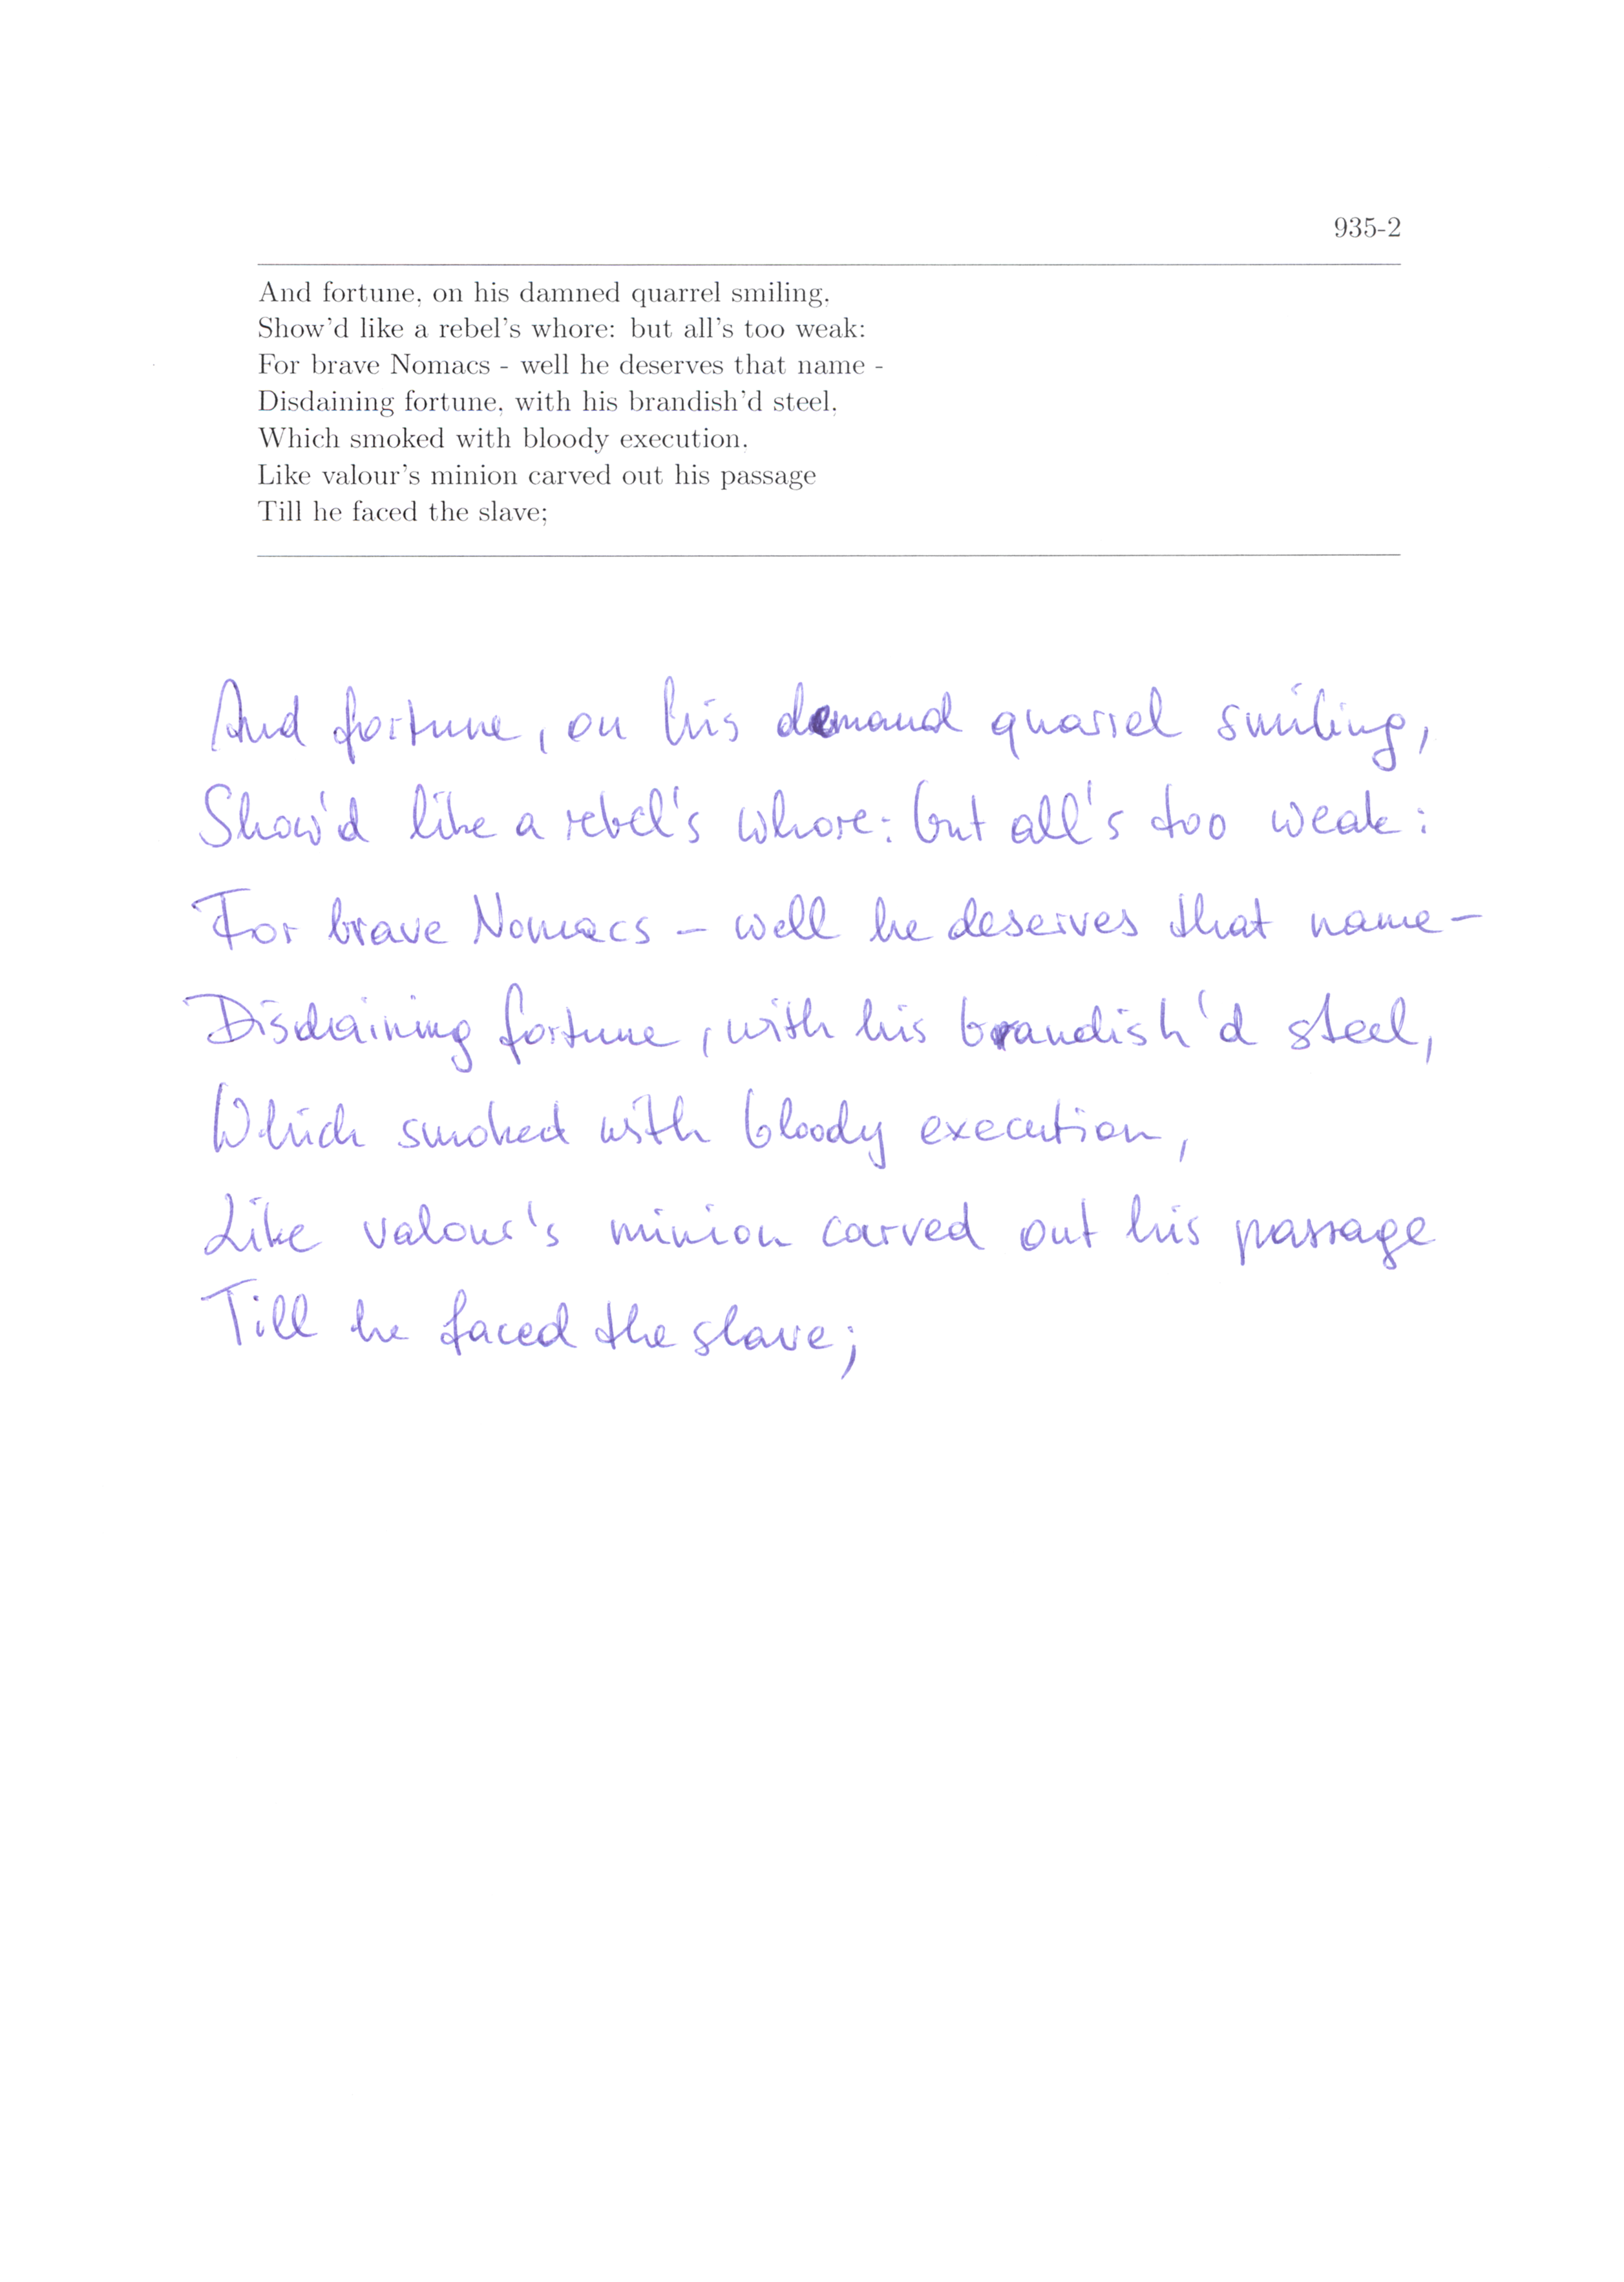 935-2
And fortune, on his damned quarrel smiling,
Show'd like a rebel's whore: but all's too weak:
For brave Nomacs - well he deserves that name -
Disdaining fortune, with his brandish'd steel,
Which smoked with bloody execution,
Like valour's minion carved out his passage
Till he faced the slave;
And fortune, on his demand quarrel smiling,
Show'd like a rebel's whore: but all's too weak:
For brave Nomacs - well he deserves that name -
Disdaining fortune, with his brandish'd steel,
Which smoked with bloody execution,
Like valour's minion carved out his passage
Till he faced the slave;